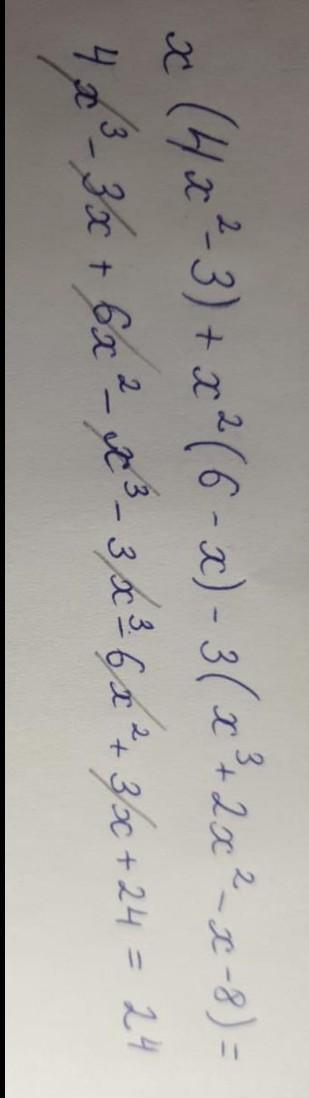 x(4x² - 3) + x²(6 - x) - 3(x³ + 2x² - x - 8) =
4x³ - 3x + 6x² - x³ - 3x³ - 6x² + 3x + 24 = 24